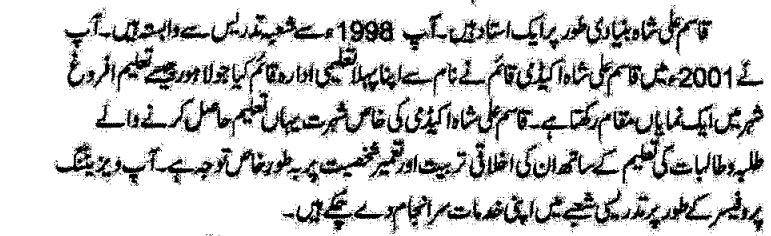 قاسم علی شاہ بنیادی طور پر ایک استاد ہیں۔ آپ 1998ء سے شعبہ تدریس سے وابستہ ہیں۔ آپ
نے 2001ء میں قاسم علی شاہ اکیڈمی قائم کے نام سے اپنا پہلا تعلیمی ادارہ قائم کیا جو لاہور جیسے تعلیم افروغ
شہر میں ایک نمایاں مقام رکھتا ہے۔ قاسم علی شاہ اکیڈمی کی خاص شہرت یہاں تعلیم حاصل کرنے والے
طلبہ و طالبات کی تعلیم کے ساتھ ان کی اخلاقی تربیت اور تعمیر شخصیت پر بہ طور خاص توجہ ہے۔ آپ ویزیٹنگ
پروفیسر کے طور پر تدریسی شعبے میں اپنی خدمات سرانجام دے چکے ہیں۔